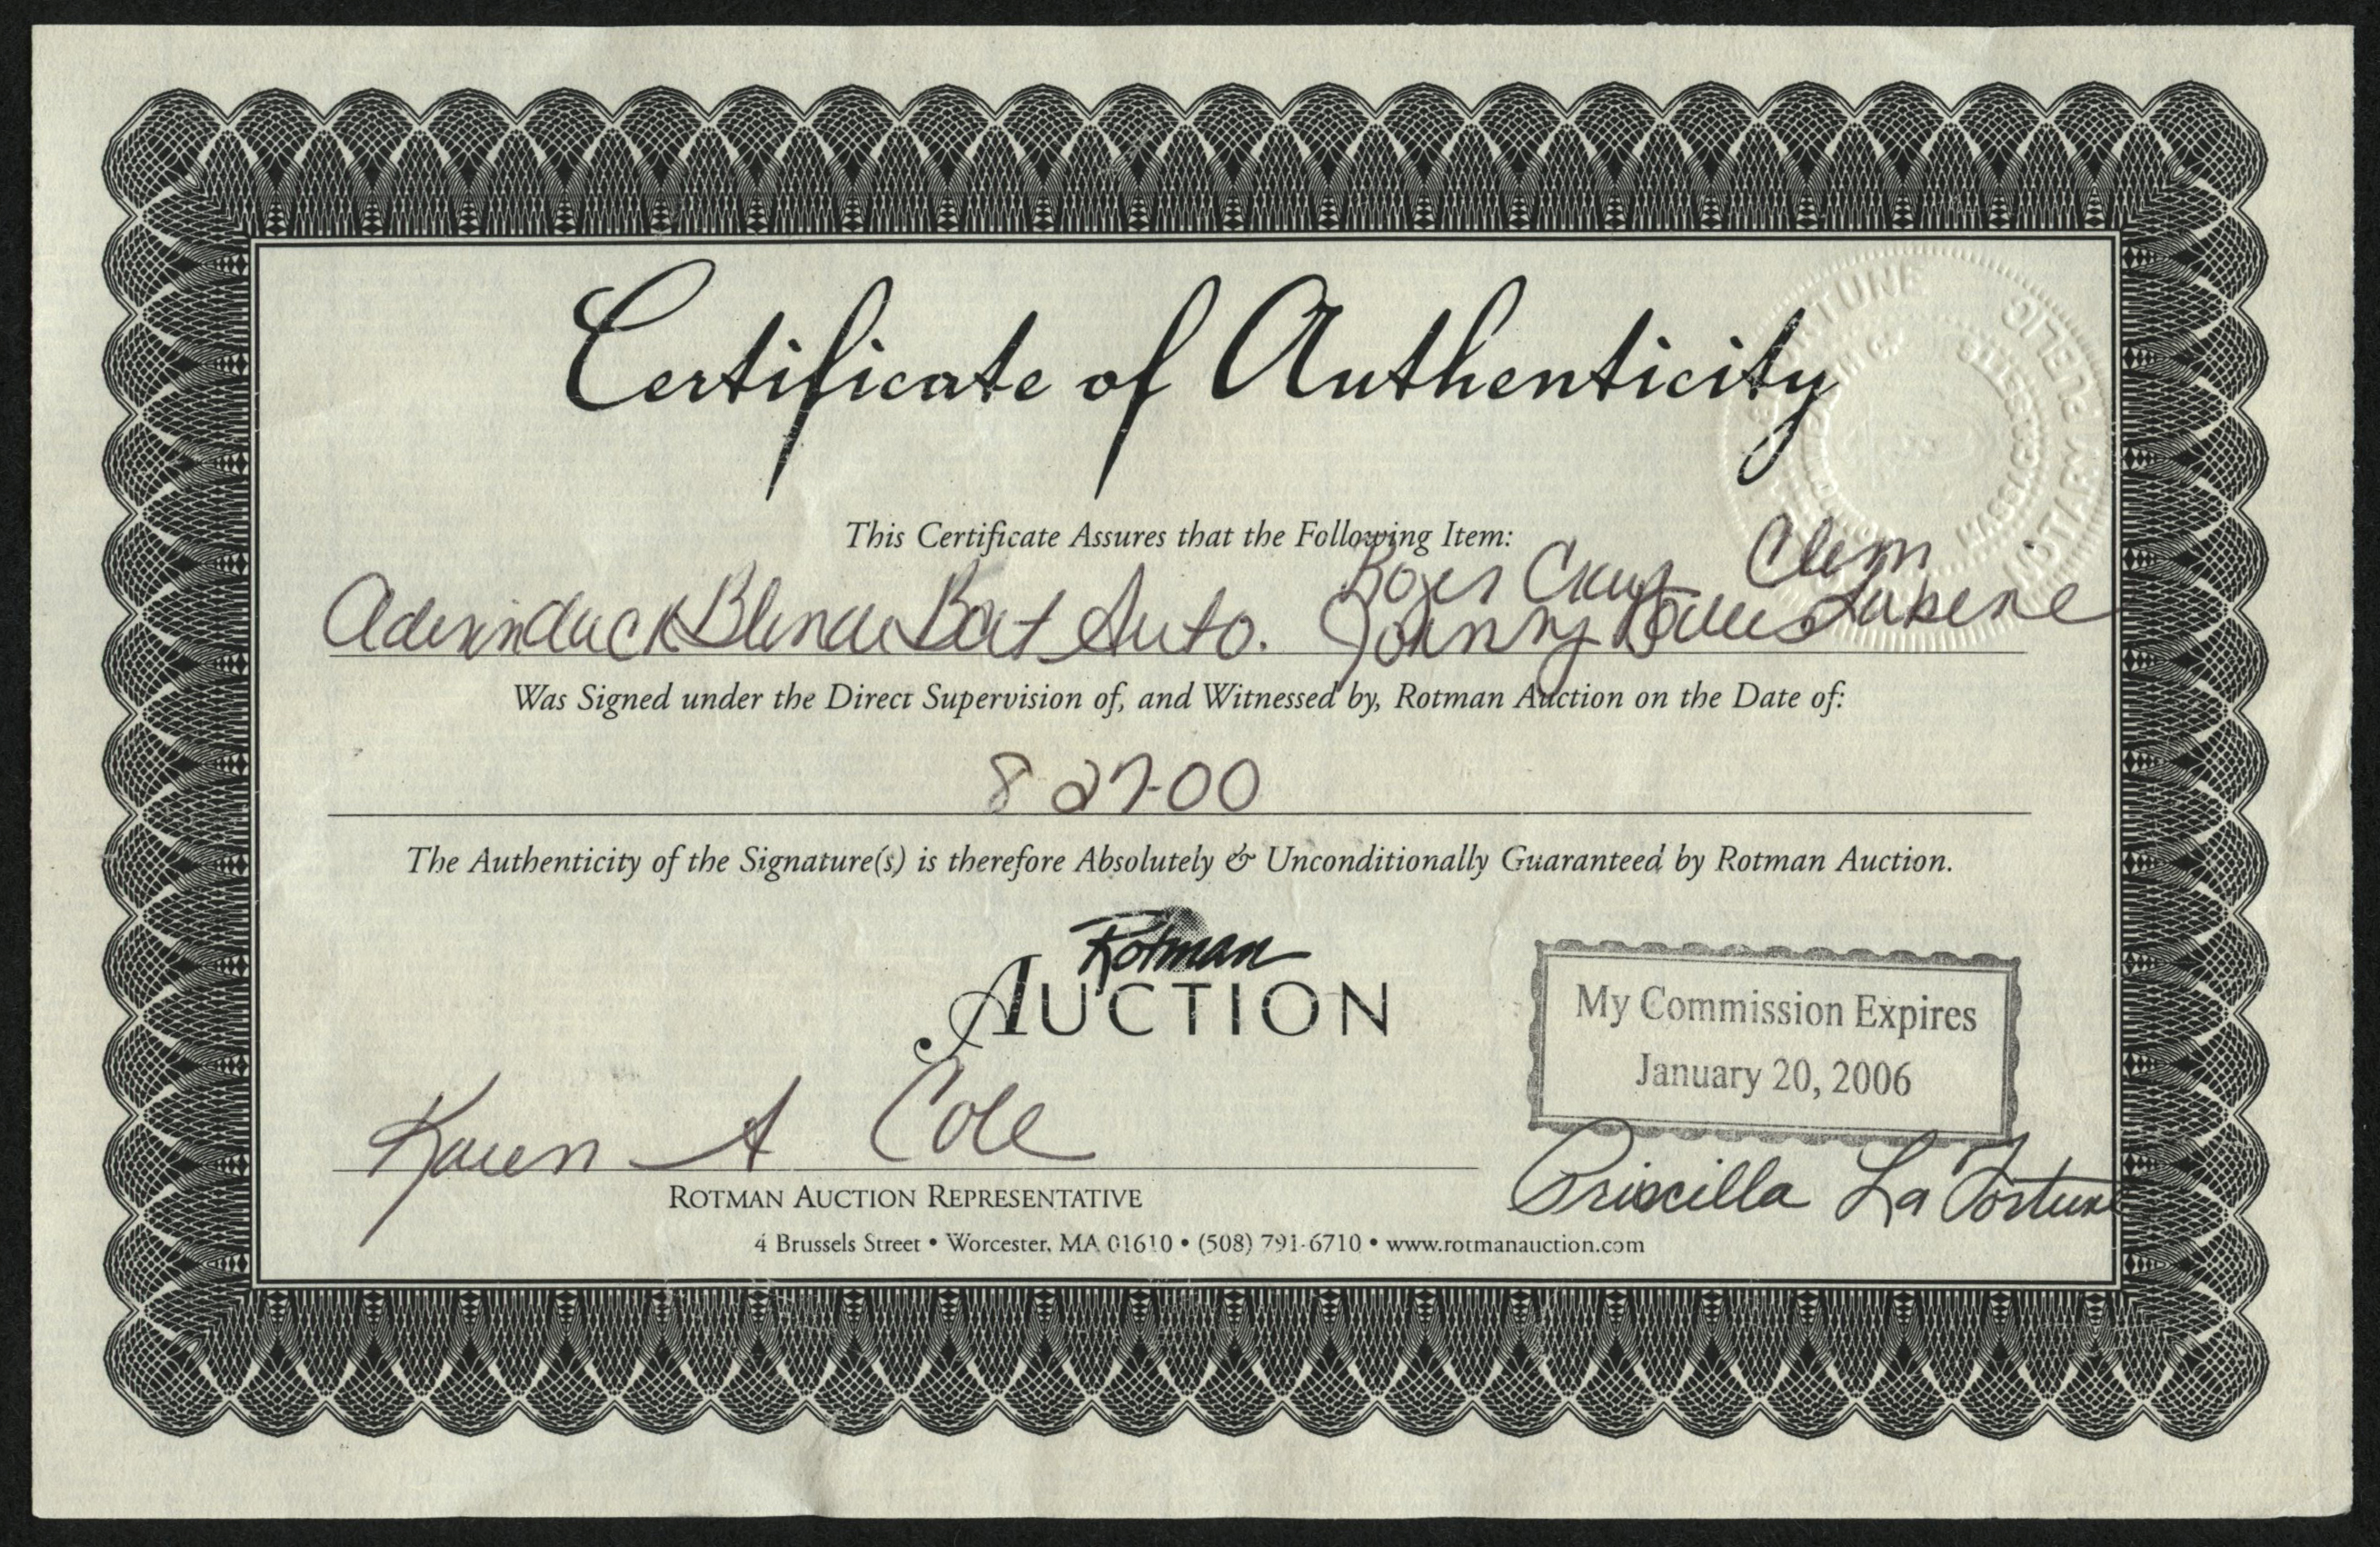 Certificate of Authenticity
This Certificate Assures that the Following Item:
Roger Clem
Bat Auto. Johnny Labine
Was Signed under the Direct Supervision of, and Witnessed by, Rotman Auction on the Date of:
8-27-00
The Authenticity of the Signature(s) is therefore Absolutely & Unconditionally Guaranteed by Rotman Auction.
Rotman
AUCTION
My Commission Expires
January 20, 2006
Karen A Cole
Priscilla La Fortune
ROTMAN AUCTION REPRESENTATIVE
4 Brussels Street • Worcester, MA 01610 • (508) 791-6710 • www.rotmanauction.com
NOTARY PUBLIC
MASSACHUSETTS